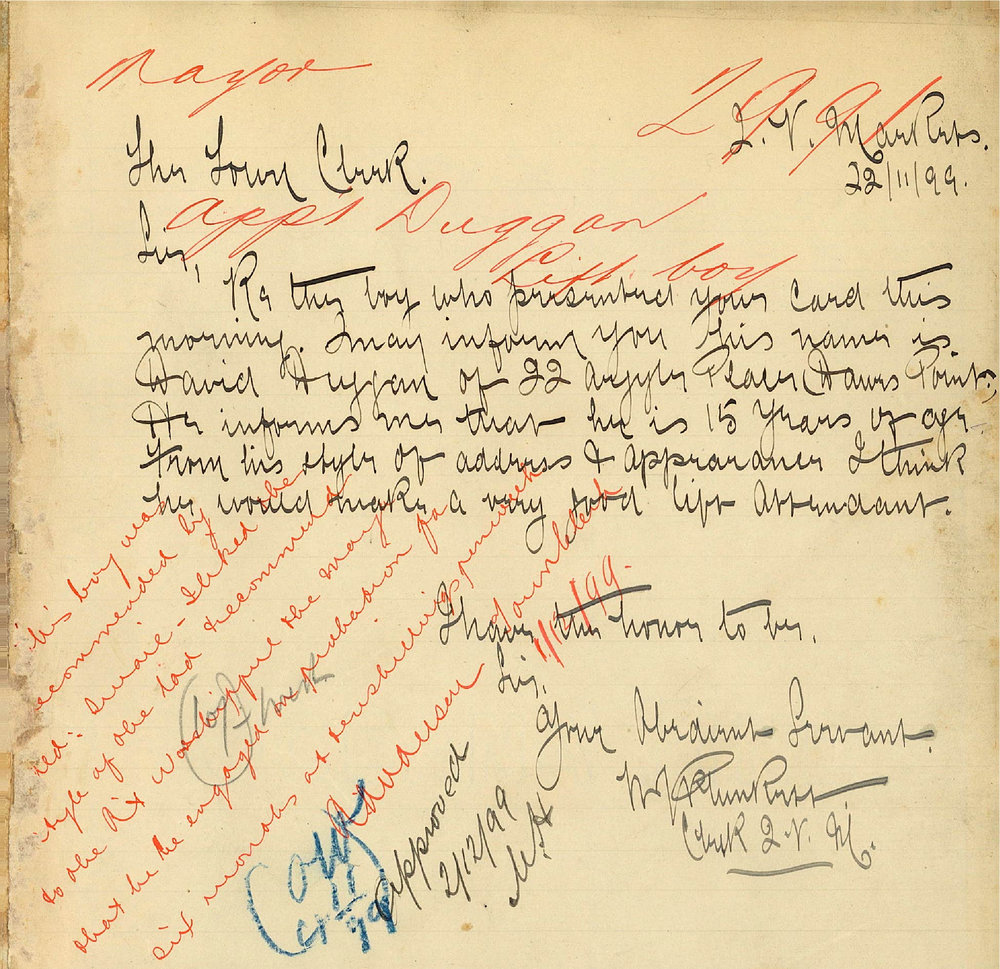 Mayor
2991
Q. V. Markets.
22/11/99.
The Town Clerk.
App't Duggan
Lift boy
Sir,
Re the boy who presented your card this
morning. I may inform you his name is
David Duggan of 22 Argyle Place, Dawes Point,
He informs me that he is 15 Years of age.
From his style of address & appearance I think
he would make a very good lift attendant.
I have the honor to be,
Sir,
Your Obedient Servant.
W J Plunkett
Clerk Q. V. M.
This boy was
recommended by
Smail - I liked the
style of the lad & recommend
to the Rt Worshipful the Mayor
that he be engaged on probation for
six months at ten shillings per week
1/12/99.
10/- week
Approved
2/12/99
11
99